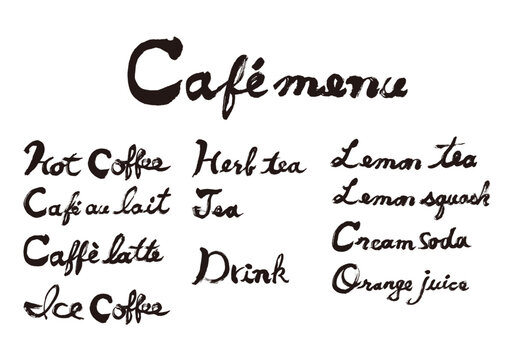 Café menu
Hot Coffee
Café au lait
Caffè latte
Ice Coffee
Herb tea
Tea
Drink
Lemon tea
Lemon squash
Cream soda
Orange juice